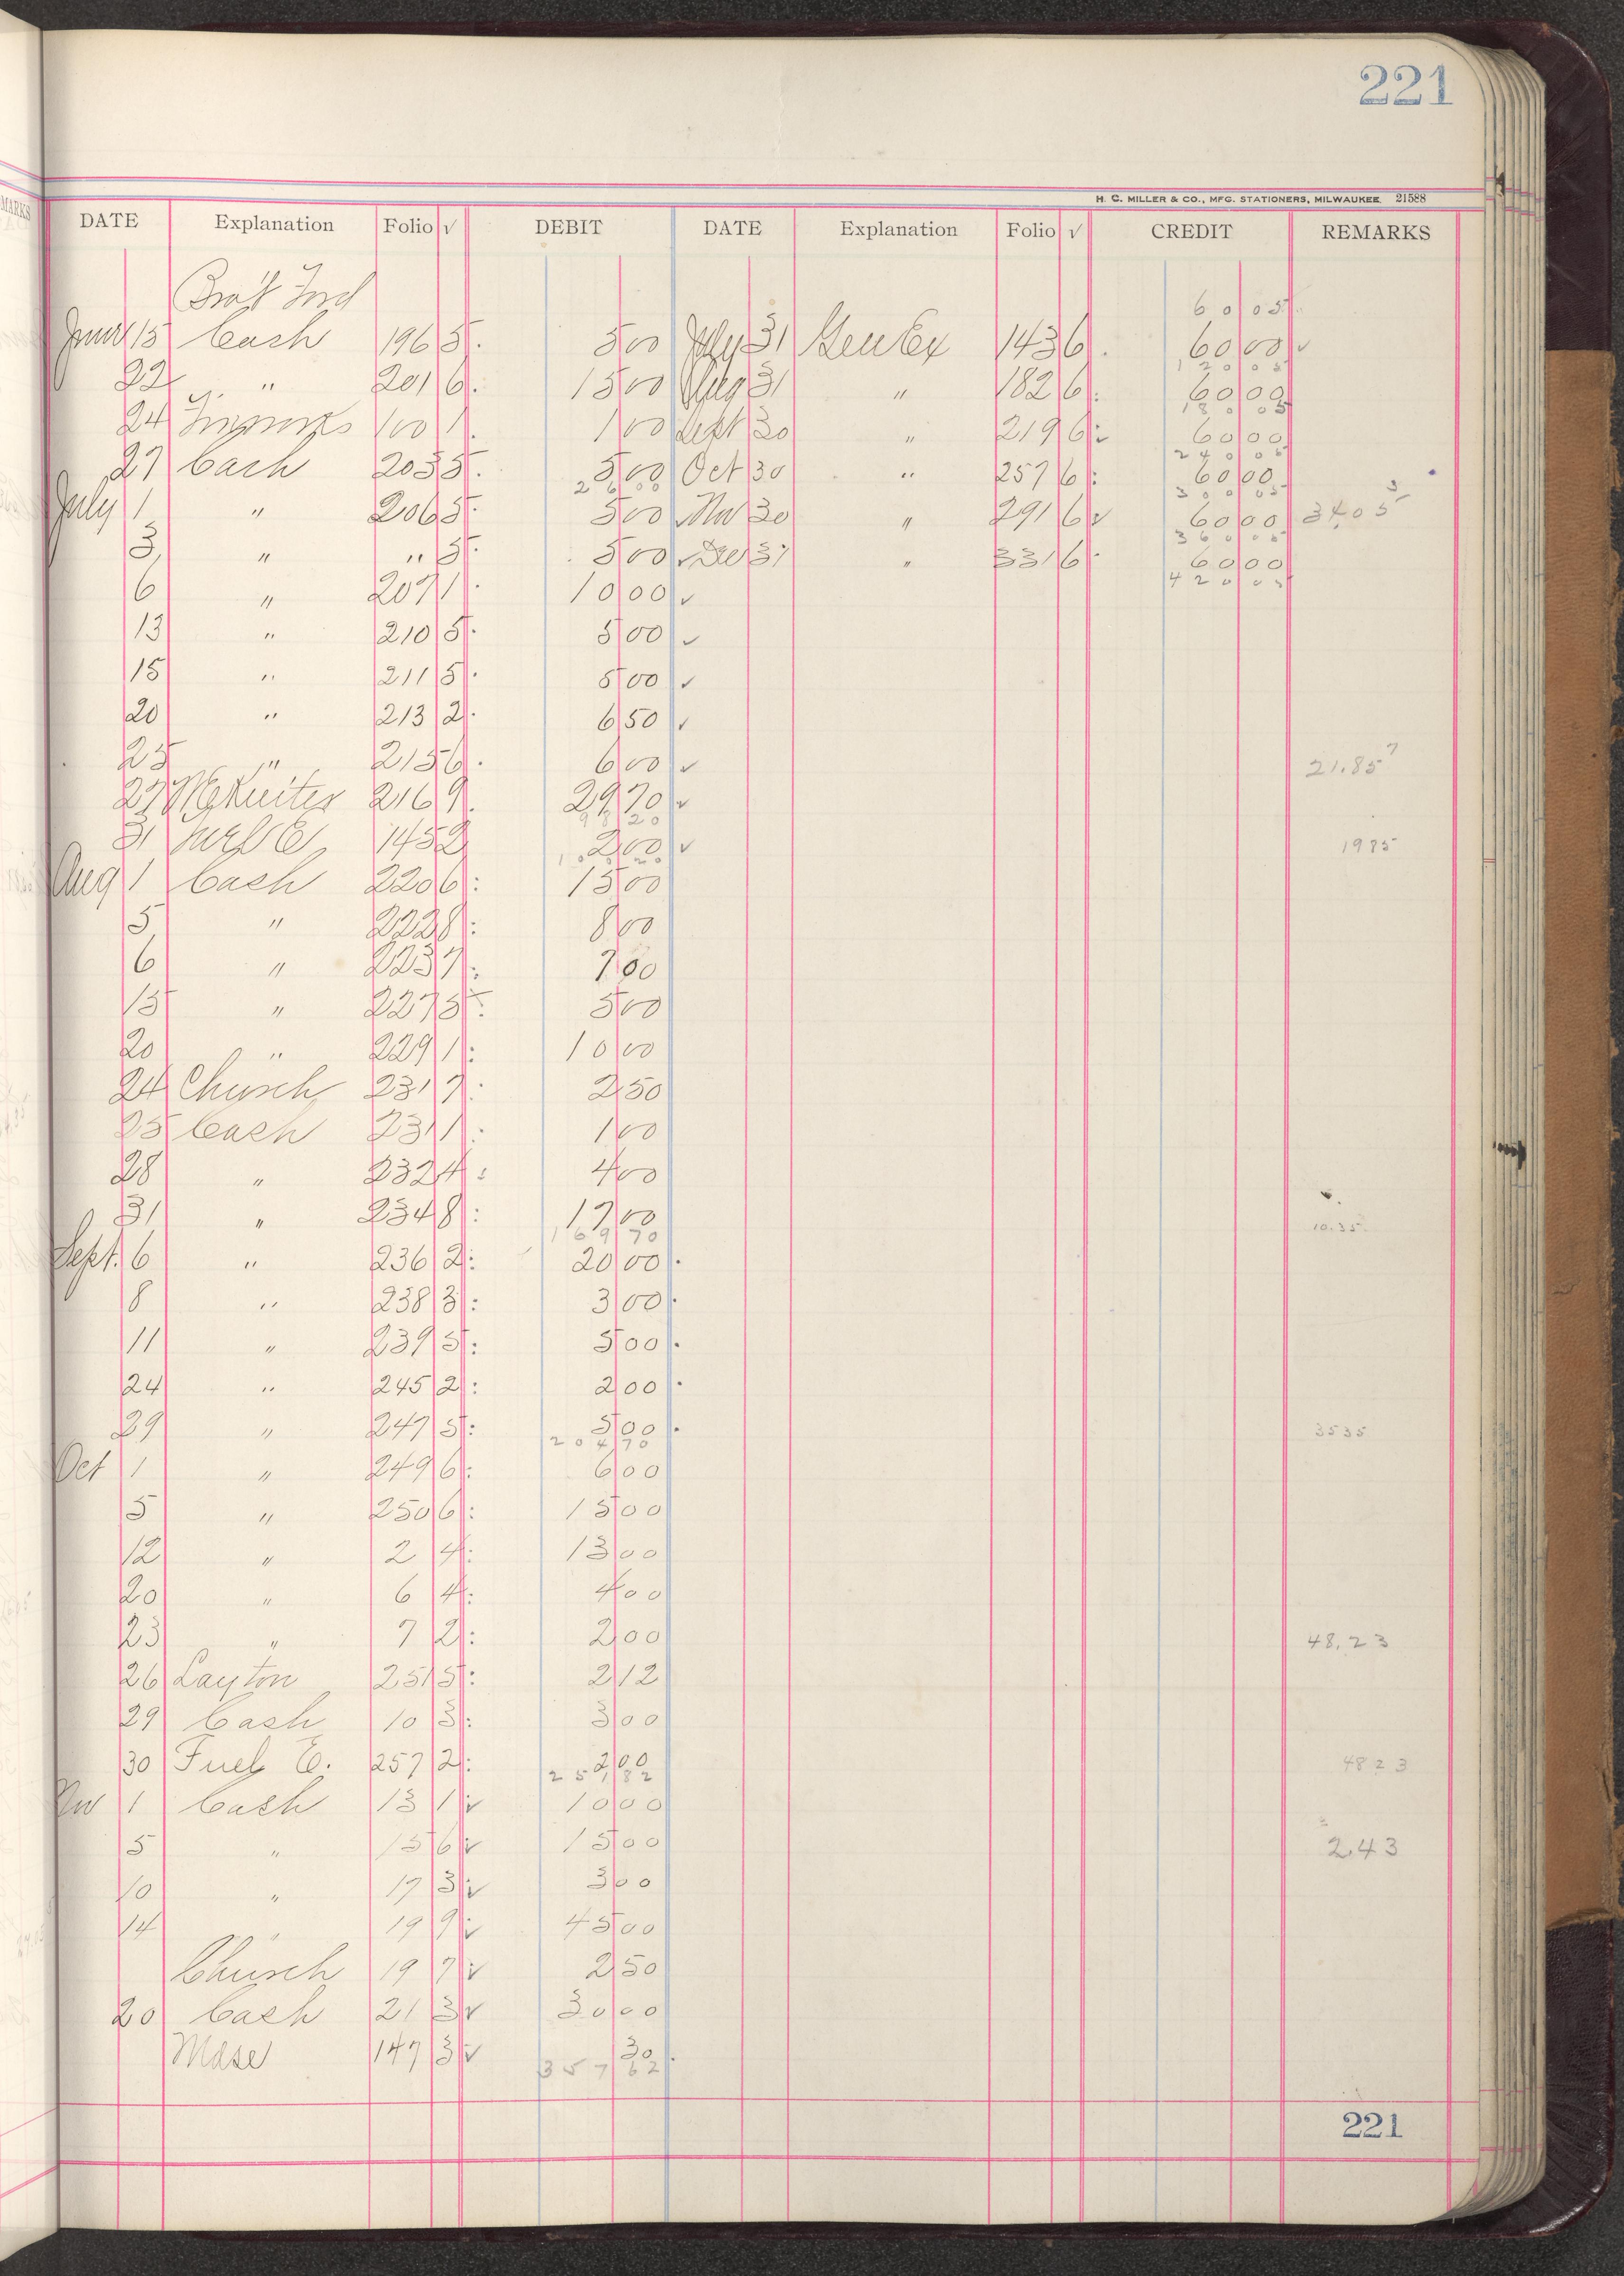 221
H. C. MILLER & CO., MFG. STATIONERS, MILWAUKEE 21588
MARKS
DATE Explanation Folio √ DEBIT DATE Explanation Folio √ CREDIT REMARKS
Bro't Ford 60 05
June 15 Cash 196 5 5 00 July 31 Gen Ex 143 6 60 00 ✓
120 05
22 " 201 6 15 00 Aug 31 " 182 6 60 00
180 05
24 100 1 1 00 Sept 30 " 219 6 60 00
240 05
27 Cash 203 5 5 00 Oct 30 " 257 6 60 00
26 00 300 05
July 1 " 206 5 5 00 Nov 30 " 291 6 ✓ 60 00 3405
360 05
3 " " 5 5 00 ✓ Dec 31 " 331 6 60 00
420 05
6 " 207 1 10 00 ✓
13 " 210 5 5 00 ✓
15 " 211 5 5 00 ✓
20 " 213 2 6 50 ✓
25 " 215 6 6 00 ✓ 21.85
27 McKuiter 216 9 29 70 ✓
98 20
31 145 2 2 00 ✓ 1985
100 20
Aug 1 Cash 220 6 15 00
5 " 222 8 8 00
6 " 223 7 7 00
15 " 227 5 5 00
20 " 229 1 10 00
24 Church 231 7 2 50
25 Cash 231 1 1 00
28 " 232 4 4 00
31 " 234 8 17 00
169 70 10.35
Sept. 6 " 236 2 20 00
8 " 238 3 3 00
11 " 239 5 5 00
24 " 245 2 2 00
29 " 247 5 5 00 3535
204 70
Oct 1 " 249 6 6 00
5 " 250 6 15 00
12 " 2 4 13 00
20 " 6 4 4 00
23 " 7 2 2 00 48.23
26 Layton 251 5 2 12
29 Cash 10 3 3 00
30 Fuel E. 257 2 2 00 4823
251 82
Nov 1 Cash 13 1 ✓ 10 00
5 " 15 6 ✓ 15 00 2.43
10 " 17 3 ✓ 3 00
14 " 19 9 ✓ 45 00
Church 19 7 ✓ 2 50
20 Cash 21 3 ✓ 30 00
Mdse 147 3 ✓ 30
357 62
221